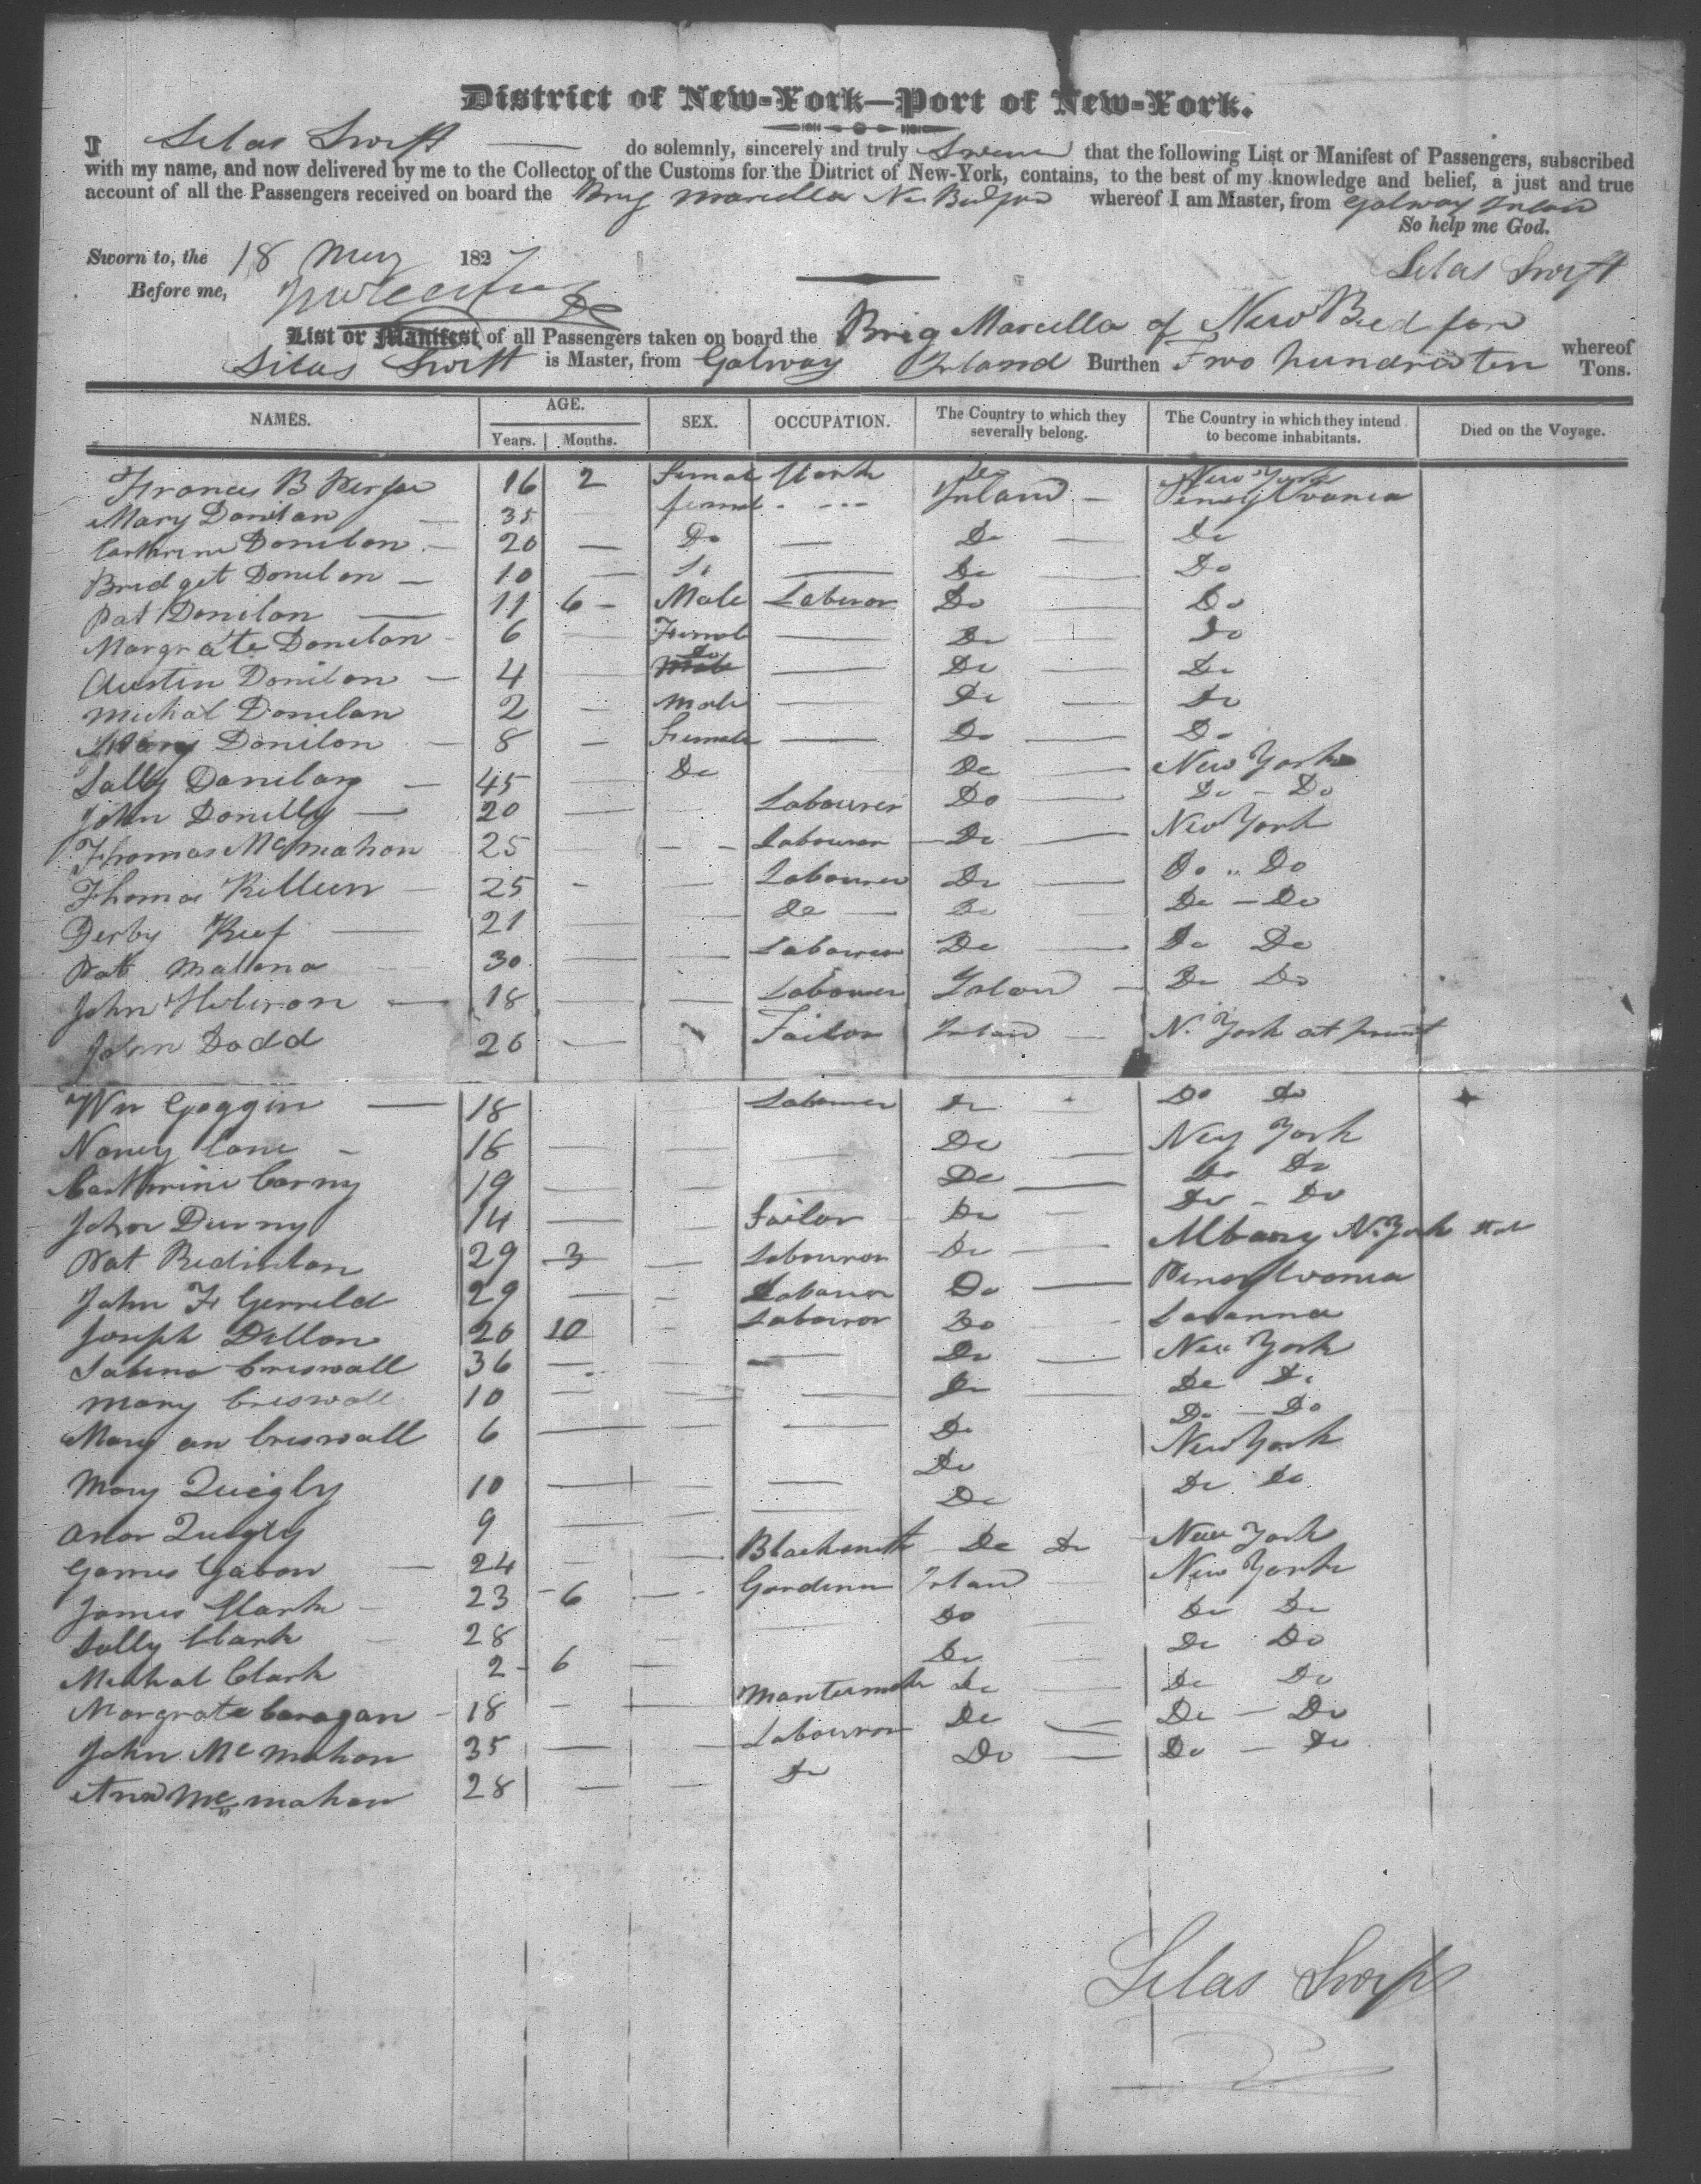 District of New-York—Port of New-York.
I Silas Swift do solemnly, sincerely and truly Swear that the following List or Manifest of Passengers, subscribed
with my name, and now delivered by me to the Collector of the Customs for the District of New-York, contains, to the best of my knowledge and belief, a just and true
account of all the Passengers received on board the Brig Marcella Nw Bedford whereof I am Master, from Galway Irland
So help me God.
Sworn to, the 18 May 1827 Silas Swift
Before me,
List or Manifest of all Passengers taken on board the Brig Marcella of New Bedford whereof
Silas Swift is Master, from Galway Irland Burthen Two hundred ten Tons.
NAMES. AGE. Years. Months. SEX. OCCUPATION. The Country to which they severally belong. The Country in which they intend to become inhabitants. Died on the Voyage.
Francis B 16 2 Femal Do New York
Mary Donilan 35 femal Irland Pensylvania
Cathrine Donilon 20 Do Do Do
Bridget Donilon 10 Do Do
Pat Donilon 11 6 Male Laburor Do Do
Margrate Donilon 6 Femal Do Do
Austin Donilon 4 Do Male Do Do
Michal Donilan 2 Male Do Do
Mary Donilon 8 Female Do Do
Sally Donilan 45 Do Do New York
John Donilly 20 Labourer Do Do Do
Thomas McMahon 25 Labourer Do New York
Thomas Killeen 25 Labourer Do Do Do
Derby Keef 21 Do Do Do Do
Pat Malona 30 Labourer Do Do Do
John 18 Labourer Irland Do Do
John Dodd 26 Tailor Irland N. York at present
Wm Goggin 18 Labourer Do Do Do
Nancy Cane 16 Do New York
Cathrine Carny 19 Do Do Do
John Durny 14 Tailor Do Do Do
Pat 29 3 Labouror Do Albany N. York State
John F Gerreld 29 Labourer Do Pensylvania
Joseph Dillon 26 10 Labouror Do Savanna
Sabina Criswall 36 Do New York
Mary Criswall 10 Do Do Do
Mary an Criswall 6 Do Do Do
Mary Quigly 10 Do New York
Quigly 9 Do Do Do
Gabon 24 Blacksmith Do Do New York
James Clark 23 6 Gardener Irland New York
Sally Clark 28 Do Do Do
Michal Clark 2 6 Do Do Do
Margrate Caragan 18 Do Do Do
John McMahon 35 Labouror Do Do Do
Ann McMahon 28 Do Do Do Do
Silas Swift